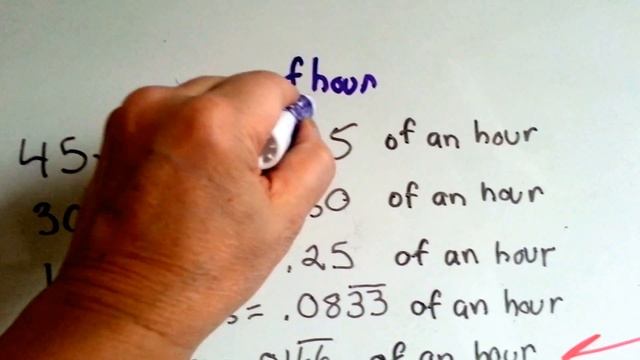 f hour
45 5 of an hour
30 50 of an hour
.25 of an hour
s = .0833 of an hour
of an hour